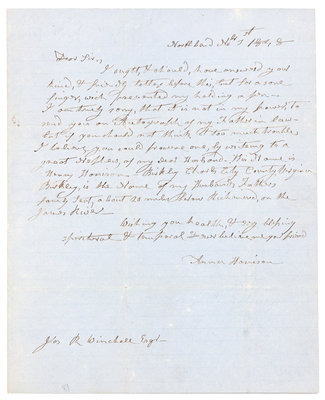 North Bend, Feb 1st
Dear Sir,
I ought, & should, have answered your
kind, & friendly letter before this, but for a sore
finger, wich prevented my holding a pen
I am truly sorry, that it is not in my power, to
send you an Autograph of my Father in law
but if you should not think it too much trouble
I believe you could procure one, by writing to a
great Nephew, of my dear Husband. His Name is
Henry Harrison Berkley Charles City County Virginia
Berkley, is the Home of my Husbands Fathers
family seat, about 20 miles below Richmond, on the
James River
Wishing you health, &
spiritual & temporal believe me your friend
Anna Harrison
Jas R Winchell Esqr